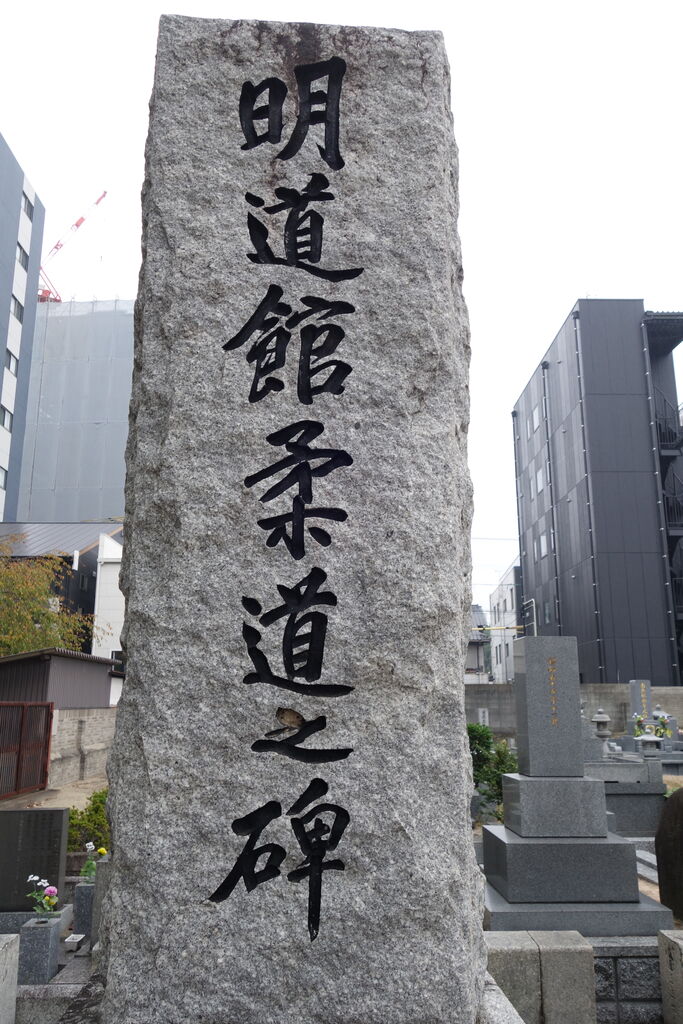 明道館柔道之碑